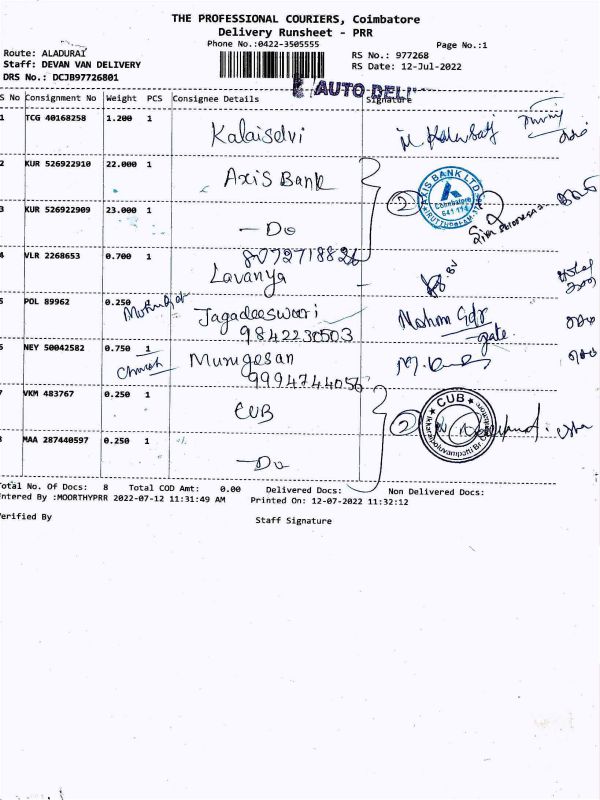 THE PROFESSIONAL COURIERS, Coimbatore
Delivery Runsheet - PRR
Phone No.:0422-3505555
Page No.:1
Route: ALADURAI
RS No.: 977268
Staff: DEVAN VAN DELIVERY
RS Date: 12-Jul-2022
DRS No.: DCJB97726801
AUTO DELI
S No Consignment No Weight PCS Consignee Details Signature
1 TCG 40168258 1.200 1 Kalaiselvi
2 KUR 526922910 22.000 1 Axis Bank
2 AXIS BANK LTD Coimbatore 641 114
3 KUR 526922909 23.000 1 - Do
8072718826
4 VLR 2268653 0.700 1 Lavanya
5 POL 89962 0.250 Jagadeeswari
9842230503
gate
6 NEY 50042582 0.750 1 Murugesan
Church 9994744056
7 VKM 483767 0.250 1 CUB
2 CUB
8 MAA 287440597 0.250 1 - Do
Total No. Of Docs: 8 Total COD Amt: 0.00 Delivered Docs: Non Delivered Docs:
Entered By :MOORTHYPRR 2022-07-12 11:31:49 AM Printed On: 12-07-2022 11:32:12
Verified By
Staff Signature